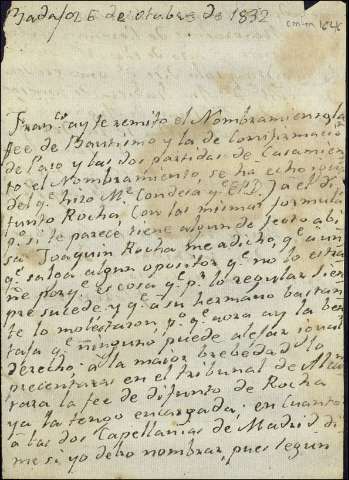 Badajoz 6 de Otubre de 1832
cm-m 1648
Franco ay te remito el Nombramiento, la
fee de Bautismo y la de Confirmació
de Paco y las dos partidas de Casamien
to el Nombramiento, se ha echo igual
del qe hizo Me Condesa y (EPD) a el di
funto Rocha, con las mismas formula
qe si te parece tiene algun defecto abi
sa. Joaquin Rocha me a dicho, qe aun
qe salga algun opositor qe no lo estra
ñe porqe es cosa qe pr lo regular siem
pre sucede, y qe a su hermano bastan
te lo molestaron, pr qe aora ay la ben
taja qe ninguno puede alejar igual
derecho, a la maior brebedad lo
precentaras en el tribunal de
para la fee de difunto de Rocha
ya la tengo encargada, en cuanto
a las dos Capellanias de Madrid di
me si yo debo nombrar, pues segun